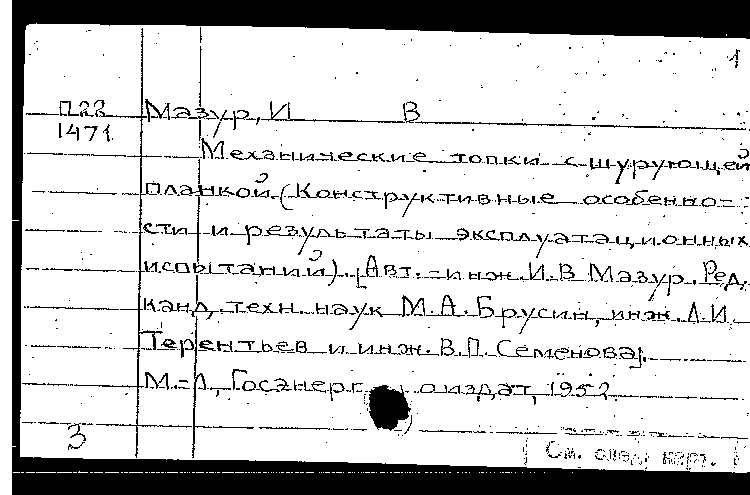 1
П22
1471
Мазур, И В
Механические топки с шурующей
планкой (Конструктивные особенно-
сти и результаты эксплуатационных
испытаний). [Авт.-инж. И.В Мазур. Ред.
канд. техн. наук М.А. Брусин, инж. Л.И.
Терентьев и инж. В.П. Семенова].
М.-Л., Госэнергоиздат, 1952
3
См. след. карт.